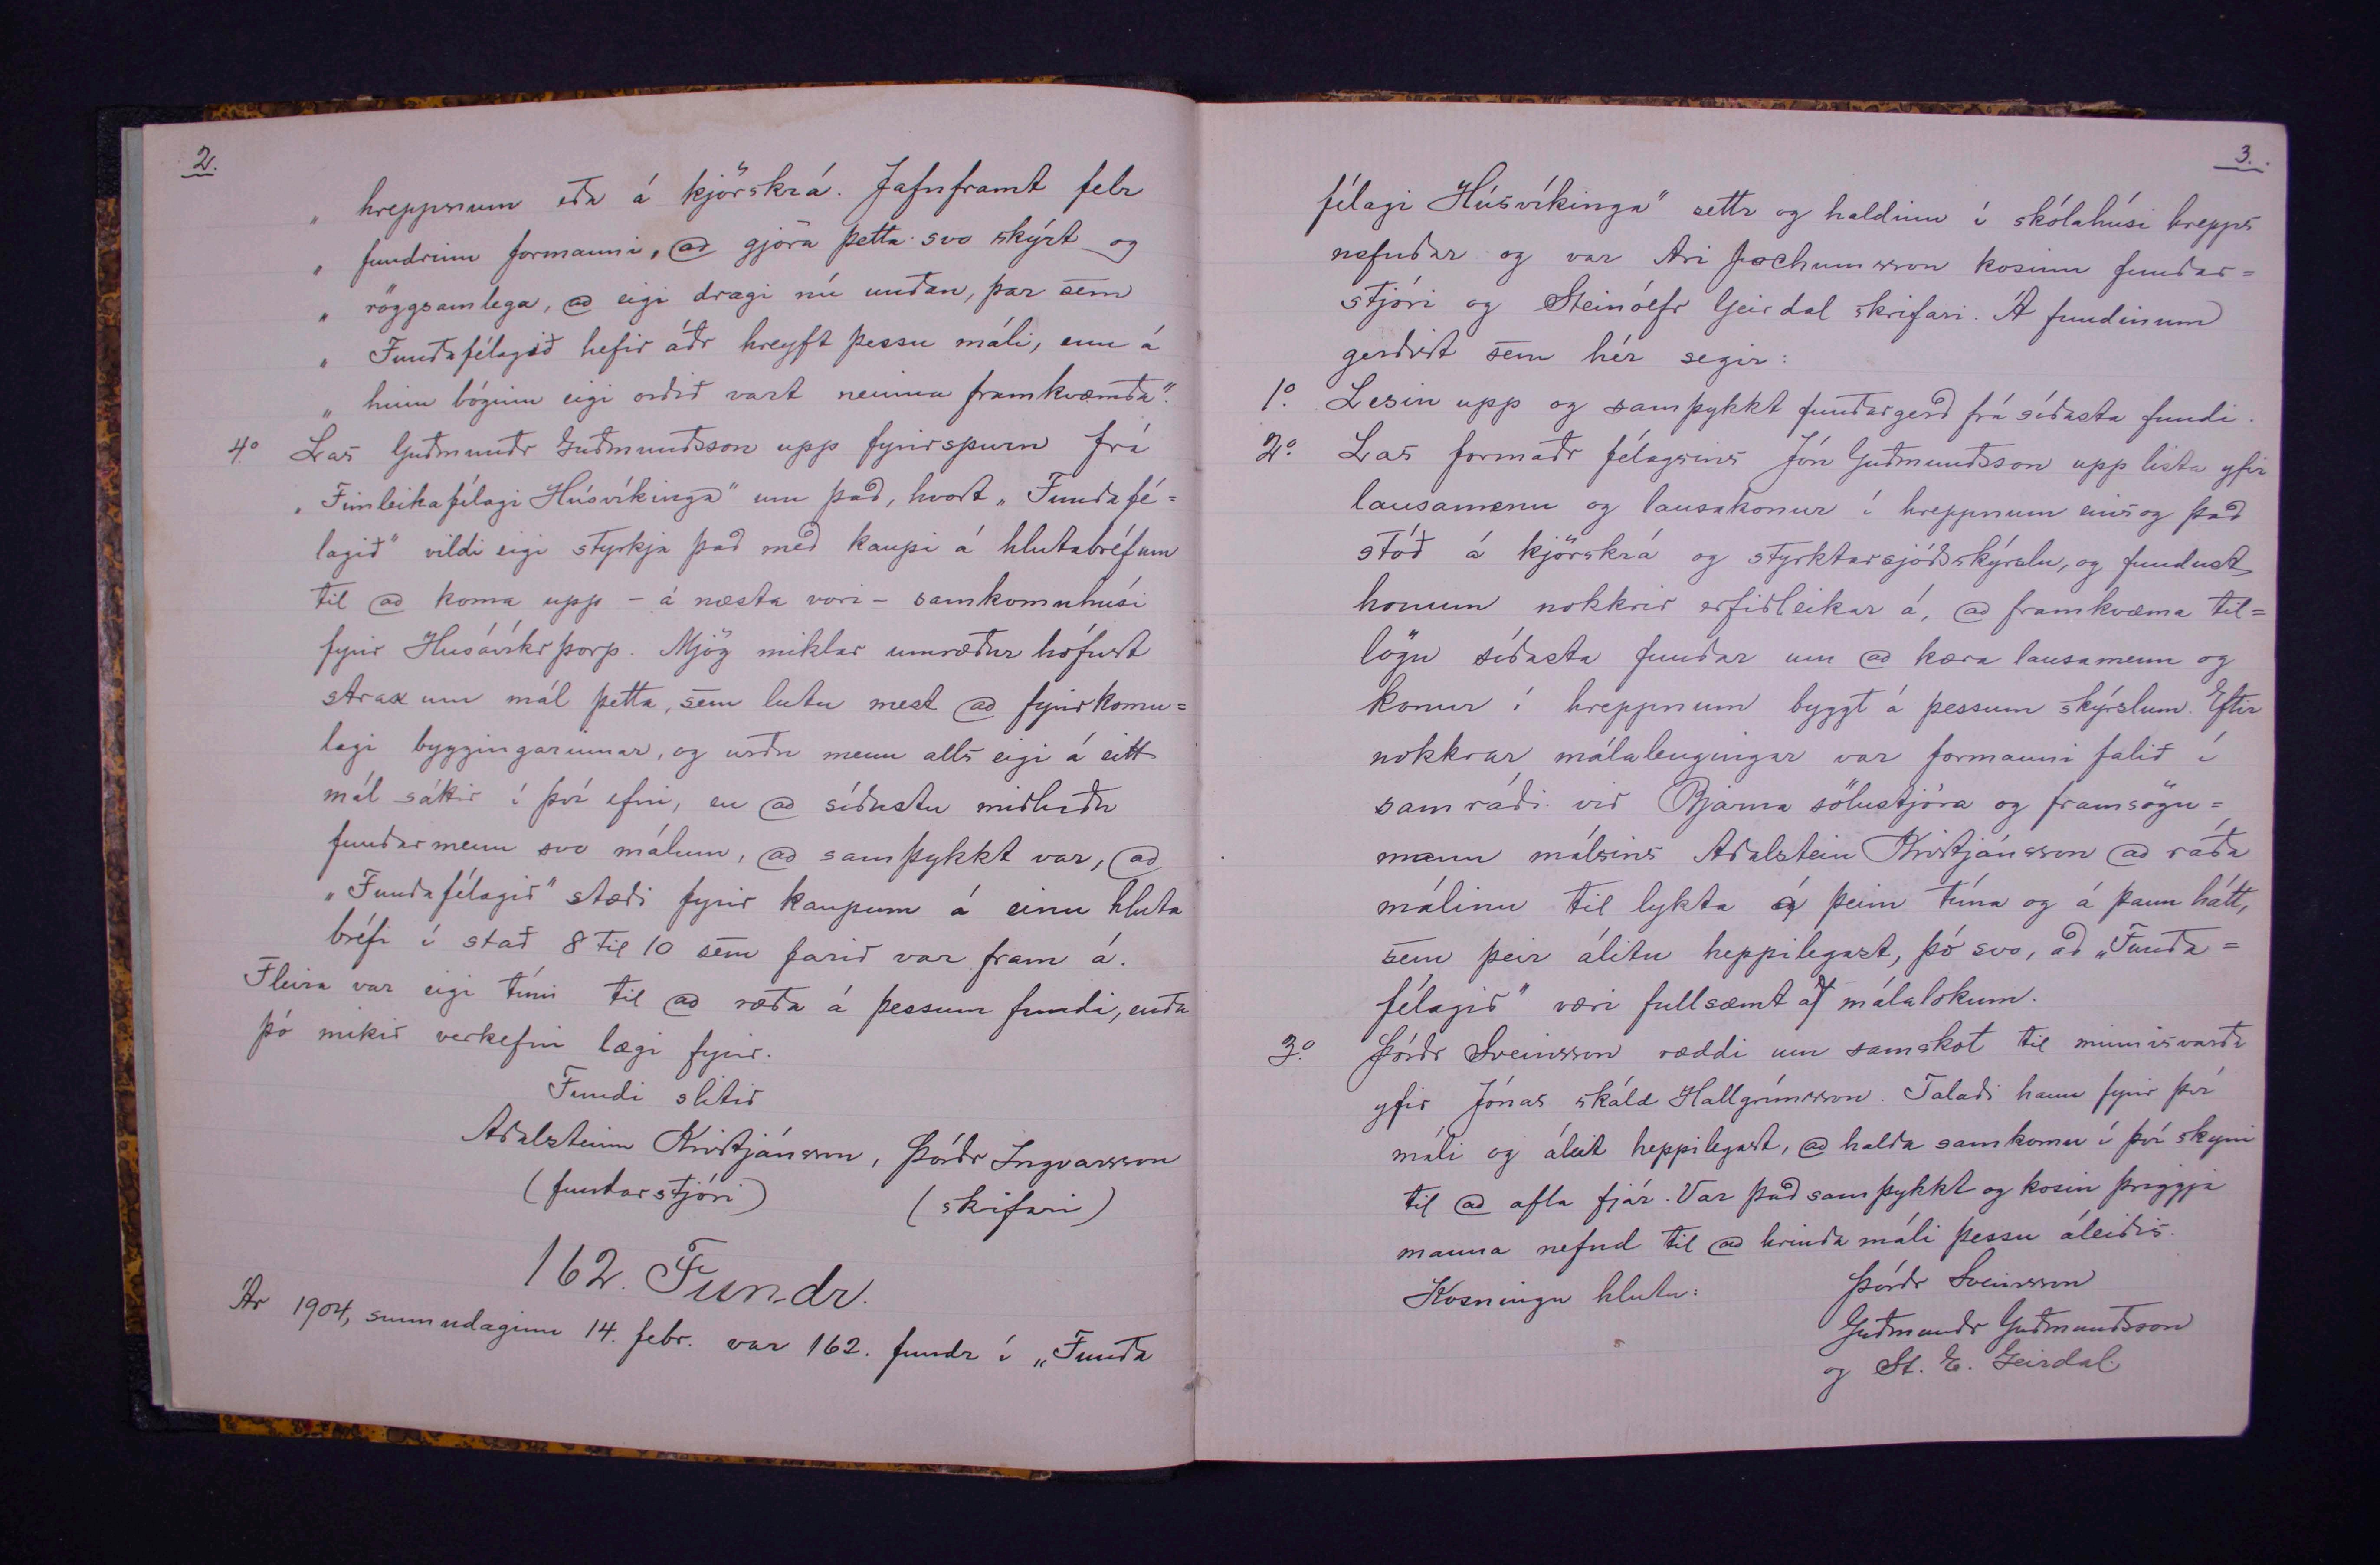 2.
„ hreppnum eða á kjörskrá. Jafnframt felr
„ fundrinn formanni, að gjöra þetta svo skýrt og
„ röggsamlega, að eigi dragi nú undan, þar sem
„ Fundafélagið hefir áðr hreyft þessu máli, enn á
„ hinn bóginn eigi orðið vart neinna framkvæmda".
4.o Las Guðmundr Guðmundsson upp fyrirspurn frá
„Fimleikafélagi Húsvíkinga" um það, hvort „Fundafé=
lagið" vildi eigi styrkja það með kaupi á hlutabréfum
til að koma upp – á næsta vori – samkomuhúsi
fyrir Húsavíkrþorp. Mjög miklar umræður hófust
strax um mál þetta, sem lutu mest að fyrirkomu=
lagi byggingarinnar, og urðu menn alls eigi á eitt
mál sáttir í því efni, en að síðustu miðluðu
fundarmenn svo málum, að samþykkt var, að
„Fundafélagið" stæði fyrir kaupum á einu hluta
bréfi í stað 8 til 10 sem farið var fram á.
Fleira var eigi tími til að ræða á þessum fundi, enda
þó mikið verkefni lægi fyrir.
Fundi slitið
Aðalsteinn Kristjánsson, Þórðr Ingvarsson
(fundarstjóri) (skrifari)
162. Fundr.
Ár 1904, sunnudaginn 14. febr. var 162. fundr í „Funda
3.
félagi Húsvíkinga" settr og haldinn í skólahúsi hrepps
nefndar og var Ari Jochumsson kosinn fundar=
stjóri og Steinólfr Geirdal skrifari. Á fundinum
gerðist sem hér segir:
1.o Lesin upp og samþykkt fundargerð frá síðasta fundi.
2.o Las formaðr félagsins Jón Guðmundsson upp lista yfir
lausamenn og lausakonur í hreppnum eins og það
stóð á kjörskrá og styrktarsjóðsskýrslu, og fundust
honum nokkrir erfiðleikar á, að framkvæma til=
lögu síðasta fundar um að kæra lausamenn og
konur í hreppnum byggt á þessum skýrslum. Eftir
nokkrar málalengingar var formanni falið í
samráði við Bjarna sölustjóra og framsögu=
mann málsins Aðalstein Kristjánsson að ráða
málinu til lykta á þeim tíma og á þann hátt,
sem þeir álitu heppilegast, þó svo, að „Funda=
félagið" væri fullsæmt af málalokum.
3.o Þórðr Sveinsson ræddi um samskot til minnisvarða
yfir Jónas skáld Hallgrímsson. Talaði hann fyrir því
máli og áleit heppilegast, að halda samkomu í því skyni
til að afla fjár. Var það samþykkt og kosin þriggja
manna nefnd til að hrinda máli þessu áleiðis.
Kosningu hlutu: Þórðr Sveinsson
Guðmundr Guðmundsson
og St. E. Geirdal.